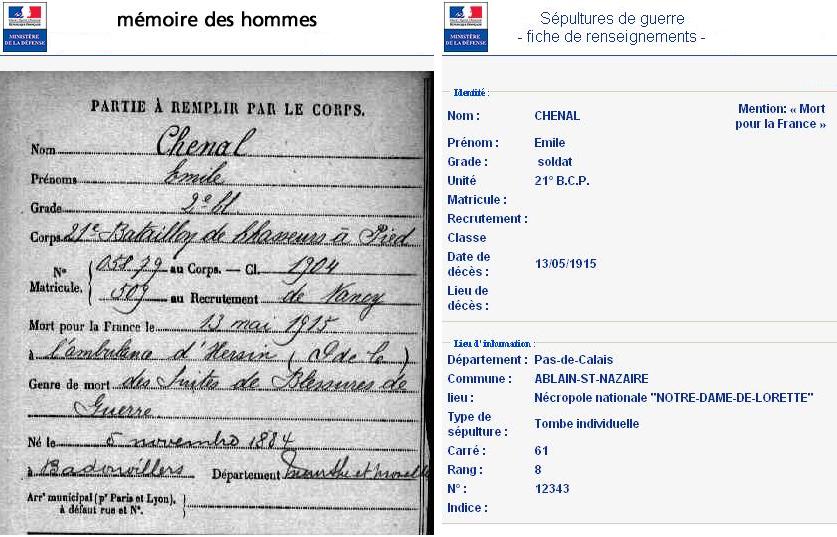 RÉPUBLIQUE FRANÇAISE
MINISTÈRE
DE LA DÉFENSE
mémoire des hommes
PARTIE À REMPLIR PAR LE CORPS.
Nom Chenal
Prénoms Emile
Grade 2e cl
Corps 21e Bataillon de Chasseurs à Pied
N° Matricule. { 05879 au Corps. — Cl. 1904
509 au Recrutement de Nancy
Mort pour la France le 13 mai 1915
à l'ambulance d'Hersin (P de C)
Genre de mort des suites de Blessures de
Guerre
Né le 5 novembre 1884
à Badonvillers Département Meurthe et Moselle
Arrt municipal (pr Paris et Lyon),
à défaut rue et N°.
RÉPUBLIQUE FRANÇAISE
MINISTÈRE
DE LA DÉFENSE
Sépultures de guerre
- fiche de renseignements -
Identité :
Nom : CHENAL
Mention: « Mort
pour la France »
Prénom : Emile
Grade : soldat
Unité 21° B.C.P.
Matricule :
Recrutement :
Classe
Date de
décès : 13/05/1915
Lieu de
décès :
Lieu d'inhumation :
Département : Pas-de-Calais
Commune : ABLAIN-ST-NAZAIRE
lieu : Nécropole nationale "NOTRE-DAME-DE-LORETTE"
Type de
sépulture : Tombe individuelle
Carré : 61
Rang : 8
N° : 12343
Indice :